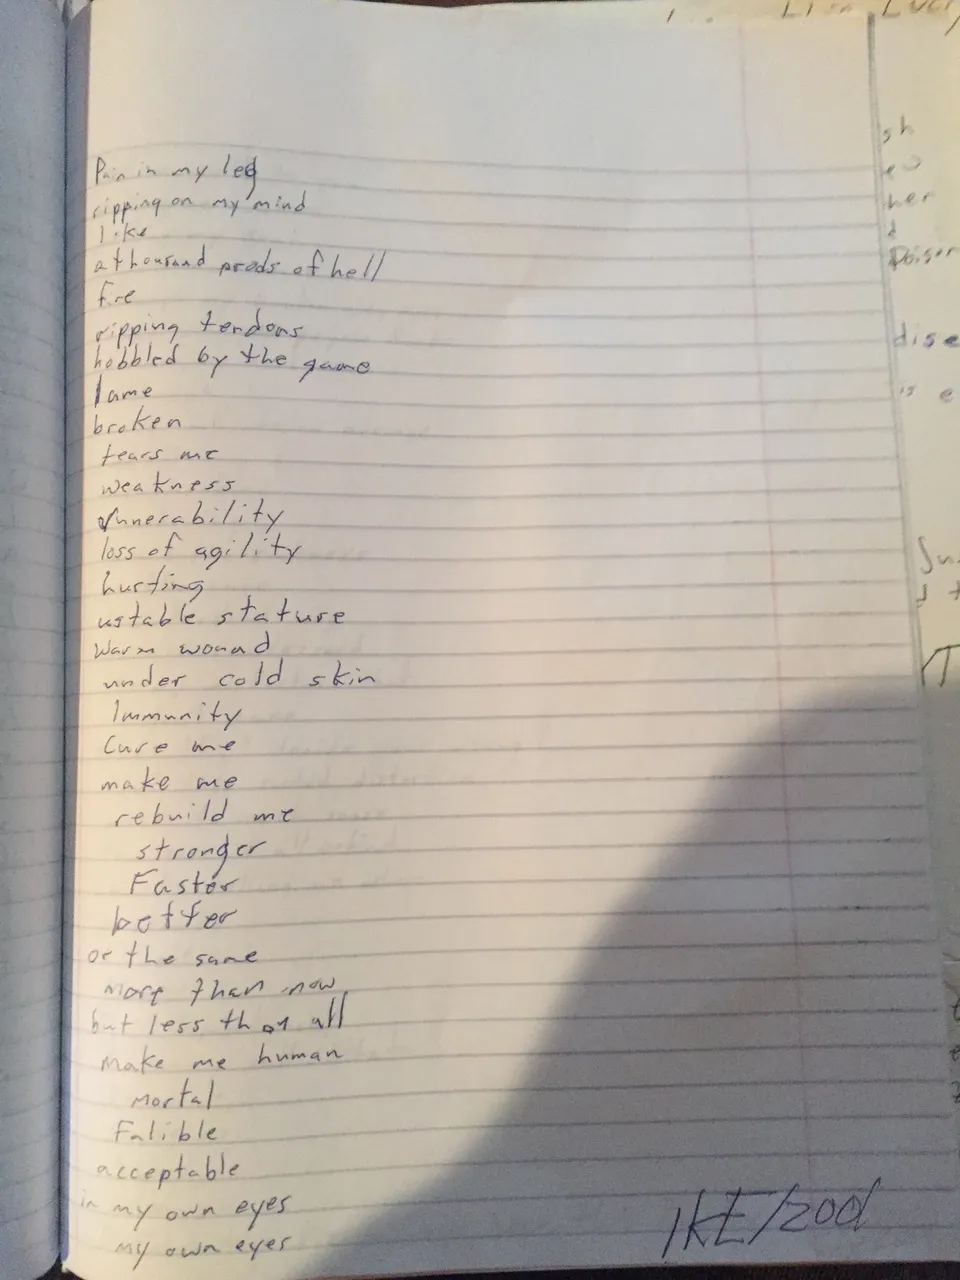 Pain in my leg
ripping on my mind
like
a thousand prods of hell
fire
ripping tendons
hobbled by the game
lame
broken
tears me
weakness
vunerability
loss of agility
hurting
ustable stature
Warm wound
under cold skin
Immunity
Cure me
make me
rebuild me
stronger
Faster
better
or the same
more than now
but less than all
make me human
Mortal
Falible
acceptable
in my own eyes
my own eyes